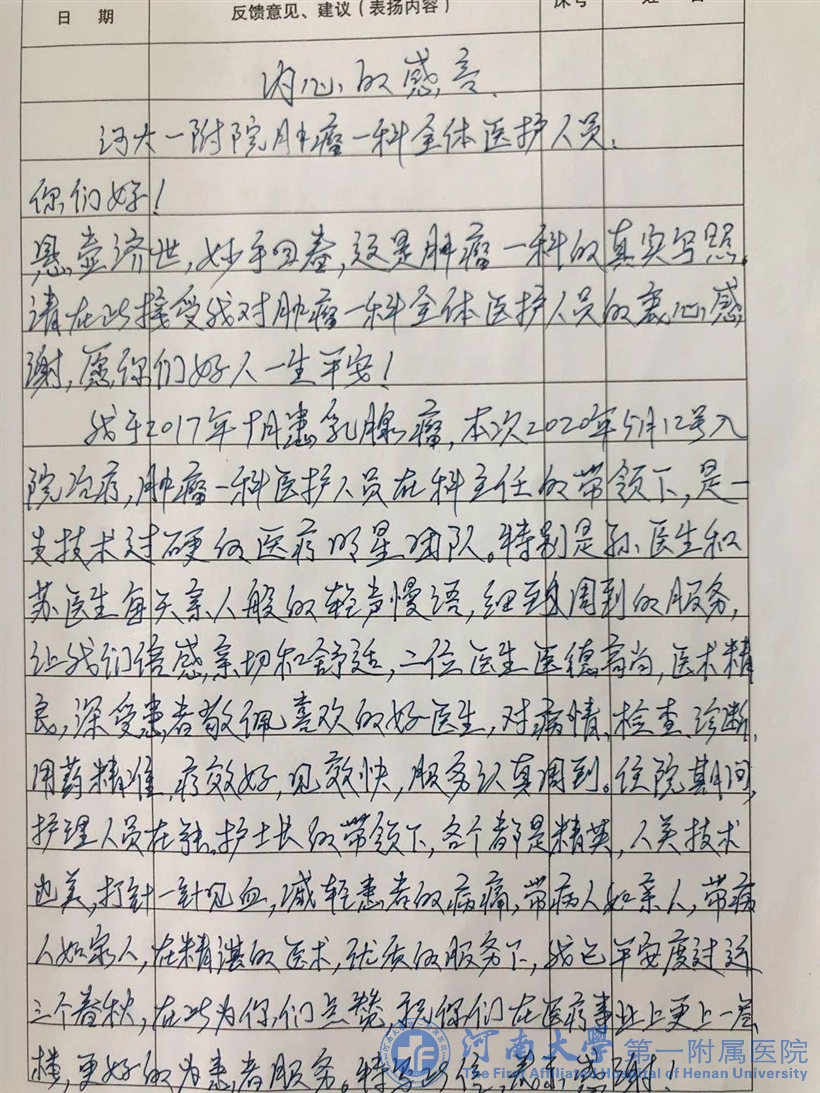 日 期 反馈意见、建议(表扬内容) 床号 姓 名
内心的感言
河大一附院肿瘤一科全体医护人员:
你们好!
悬壶济世,妙手回春,这是肿瘤一科的真实写照。
请在此接受我对肿瘤一科全体医护人员的衷心感
谢,愿你们好人一生平安!
我于2017年十月患乳腺瘤,本次2020年5月12号入
院治疗,肿瘤一科医护人员在科主任的带领下,是一
支技术过硬的医疗明星团队。特别是孙医生和
苏医生每天亲人般的轻声慢语,细致周到的服务,
让我们倍感亲切和舒适,二位医生医德高尚,医术精
良,深受患者敬佩喜欢的好医生,对病情、检查诊断,
用药精准,疗效好,见效快,服务认真周到。住院期间,
护理人员在张护士长的带领下,各个都是精英,人美技术
也美,打针一针见血,减轻患者的病痛,带病人如亲人,带病
人如家人,在精湛的医术,优质的服务下,我已平安度过近
三个春秋,在此为你们点赞,祝你们在医疗事业上更上一层
楼,更好的为患者服务。特写此信,表示感谢!
河南大学第一附属医院
The First Affiliated Hospital of Henan University